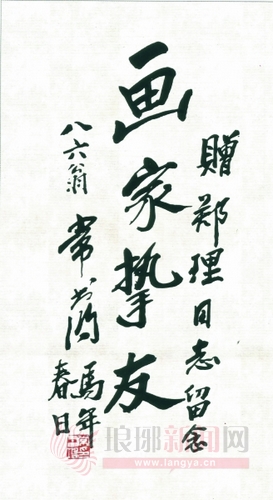 贈郑理同志留念
画家挚友
八六翁 常书鸿
馬年
春日
琅琊新闻网
www.langya.cn